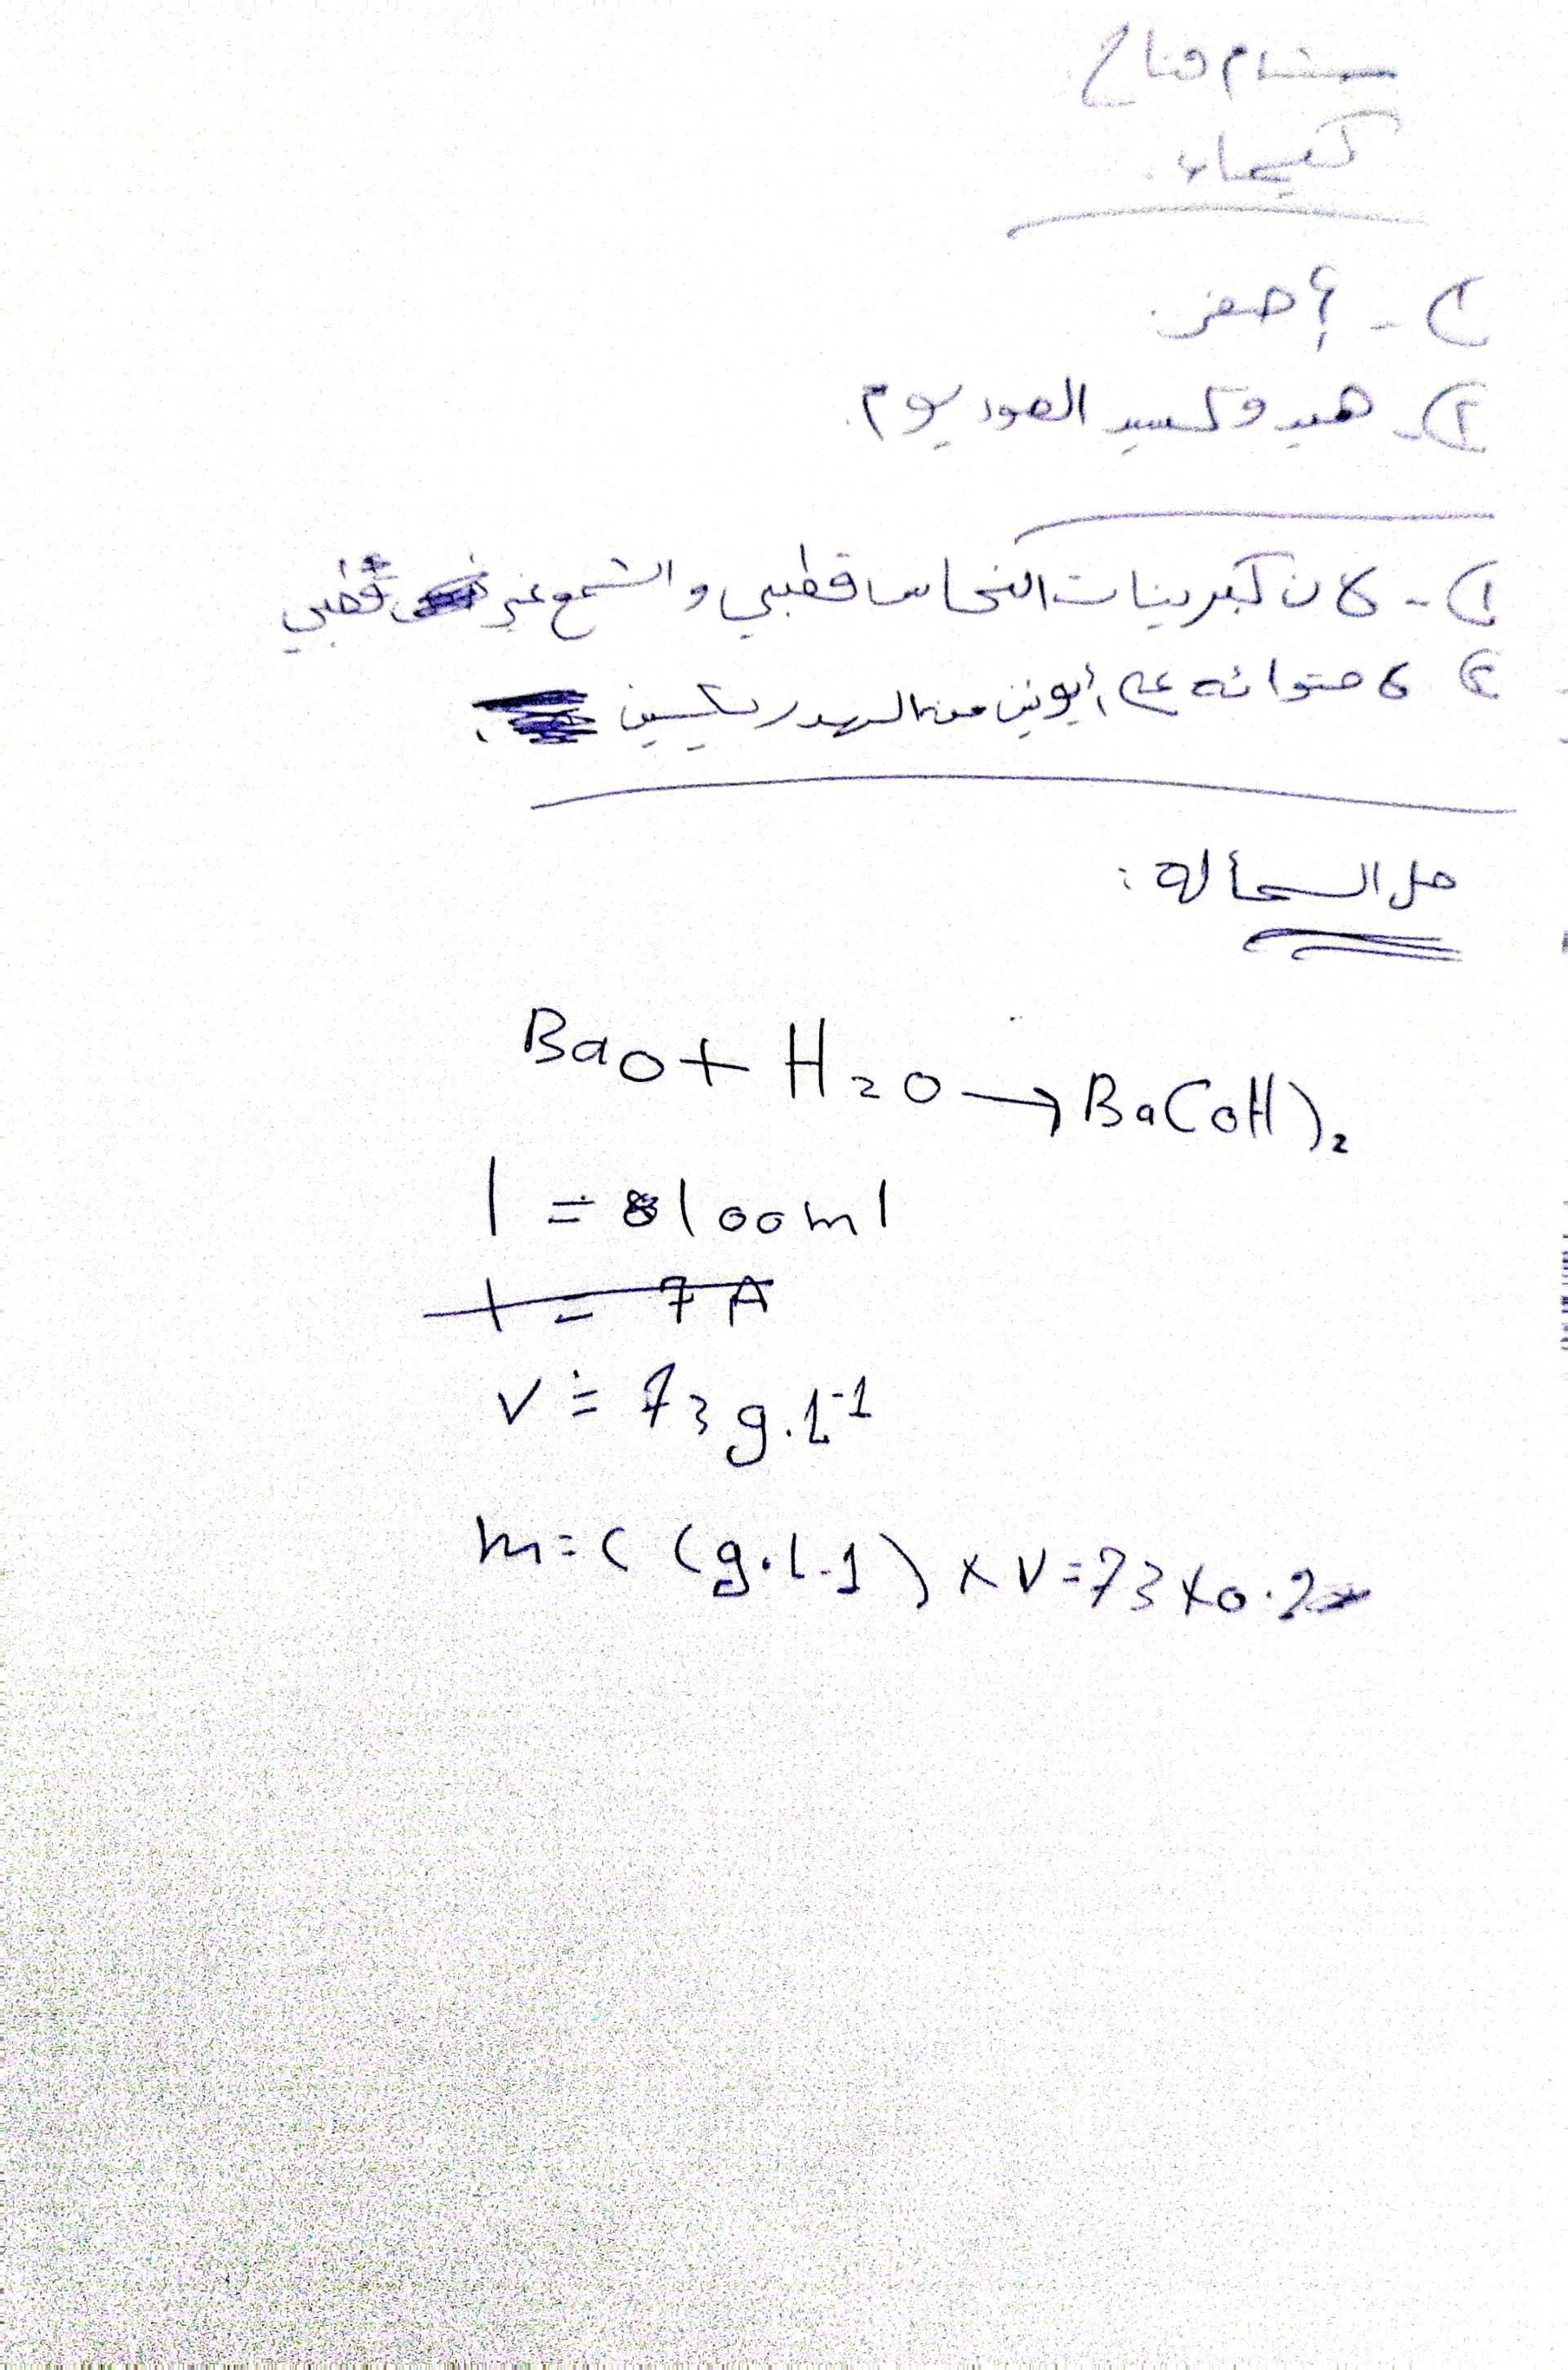 كيمياء.
١) - أصفر.
٢) - هيدوكسيد الصوديوم.
١) - لان كبريتات النحاس قطبي والشمع غير قطبي
٢) لاحتوائه على أيونين من الهدروكسين
حل المسألة :
BaO + H2O → Ba(OH)2
1 = 8100ml
1 = 7A
V = 73 g.L-1
m = C (g.L-1) x V = 73 x 0.2